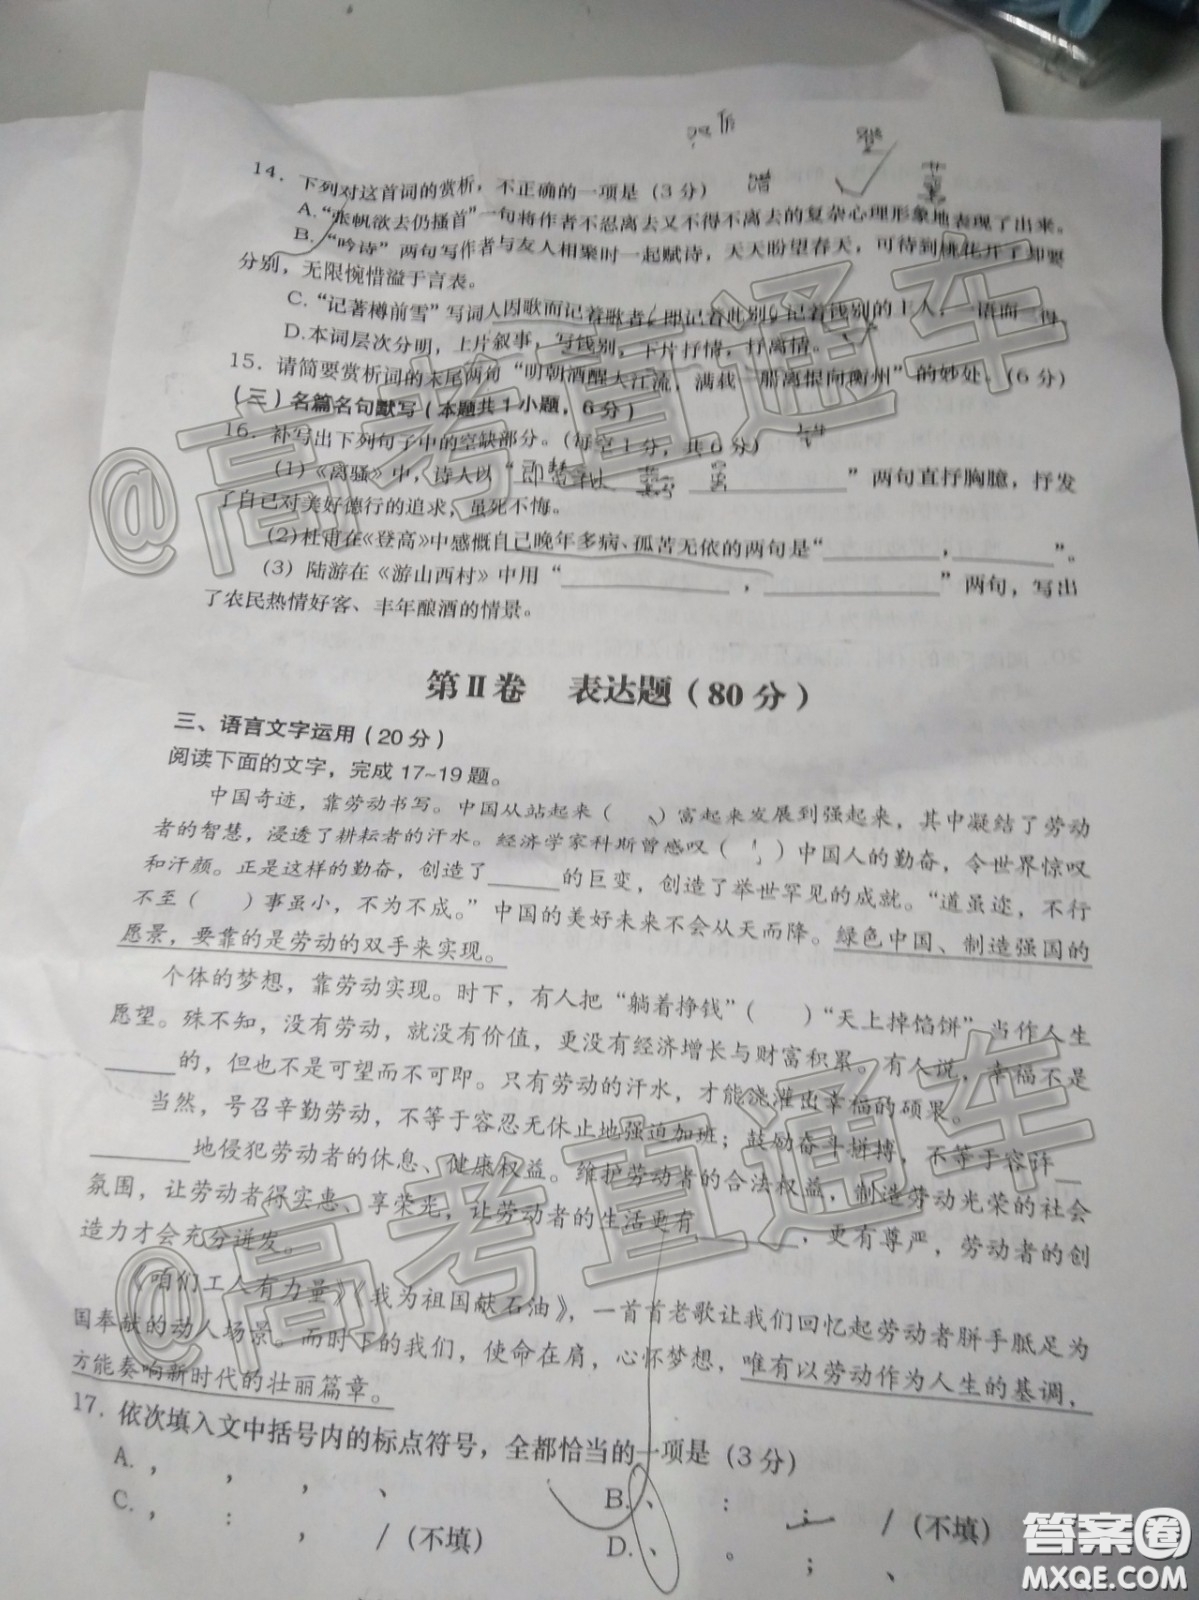 14．下列对这首词的赏析，不正确的一项是（3分）
A.“张帆欲去仍搔首”一句将作者不忍离去又不得不离去的复杂心理形象地表现了出来。
B.“吟诗”两句写作者与友人相聚时一起赋诗，天天盼望春天，可待到桃花开了却要
分别，无限惋惜溢于言表。
C.“记著樽前雪”写词人因歌而记着歌者，即记着此别，记着饯别的主人，一语而三得。
D.本词层次分明，上片叙事，写饯别，下片抒情，抒离情。
15．请简要赏析词的末尾两句“明朝酒醒大江流，满载一船离恨向衡州”的妙处。（6分）
（三）名篇名句默写（本题共1小题，6分）
16．补写出下列句子中的空缺部分。（每空1分，共6分）
（1）《离骚》中，诗人以“ ”两句直抒胸臆，抒发
了自己对美好德行的追求，虽死不悔。
（2）杜甫在《登高》中感慨自己晚年多病、孤苦无依的两句是“ ， ”。
（3）陆游在《游山西村》中用“ ， ”两句，写出
了农民热情好客、丰年酿酒的情景。
第Ⅱ卷 表达题（80分）
三、语言文字运用（20分）
阅读下面的文字，完成17~19题。
中国奇迹，靠劳动书写。中国从站起来（ ）富起来发展到强起来，其中凝结了劳动
者的智慧，浸透了耕耘者的汗水。经济学家科斯曾感叹（ ）中国人的勤奋，令世界惊叹
和汗颜。正是这样的勤奋，创造了 的巨变，创造了举世罕见的成就。“道虽迩，不行
不至（ ）事虽小，不为不成。”中国的美好未来不会从天而降。绿色中国、制造强国的
愿景，要靠的是劳动的双手来实现。
个体的梦想，靠劳动实现。时下，有人把“躺着挣钱”（ ）“天上掉馅饼”当作人生
愿望。殊不知，没有劳动，就没有价值，更没有经济增长与财富积累。有人说，幸福不是
的，但也不是可望而不可即。只有劳动的汗水，才能浇灌出幸福的硕果。
当然，号召辛勤劳动，不等于容忍无休止地强迫加班；鼓励奋斗拼搏，不等于容许
地侵犯劳动者的休息、健康权益。维护劳动者的合法权益，制造劳动光荣的社会
氛围，让劳动者得实惠、享荣光，让劳动者的生活更有 ，更有尊严，劳动者的创
造力才会充分迸发。
《咱们工人有力量》《我为祖国献石油》，一首首老歌让我们回忆起劳动者胼手胝足为
国奉献的动人场景。而时下的我们，使命在肩，心怀梦想，唯有以劳动作为人生的基调，
方能奏响新时代的壮丽篇章。
17．依次填入文中括号内的标点符号，全都恰当的一项是（3分）
A. ， ， ， 、
B. 、 ： ； /（不填）
C. ， ： ， /（不填）
D. 、 。 ； 、
@高考直通车
@高考直通车
答案圈
MXQE.COM